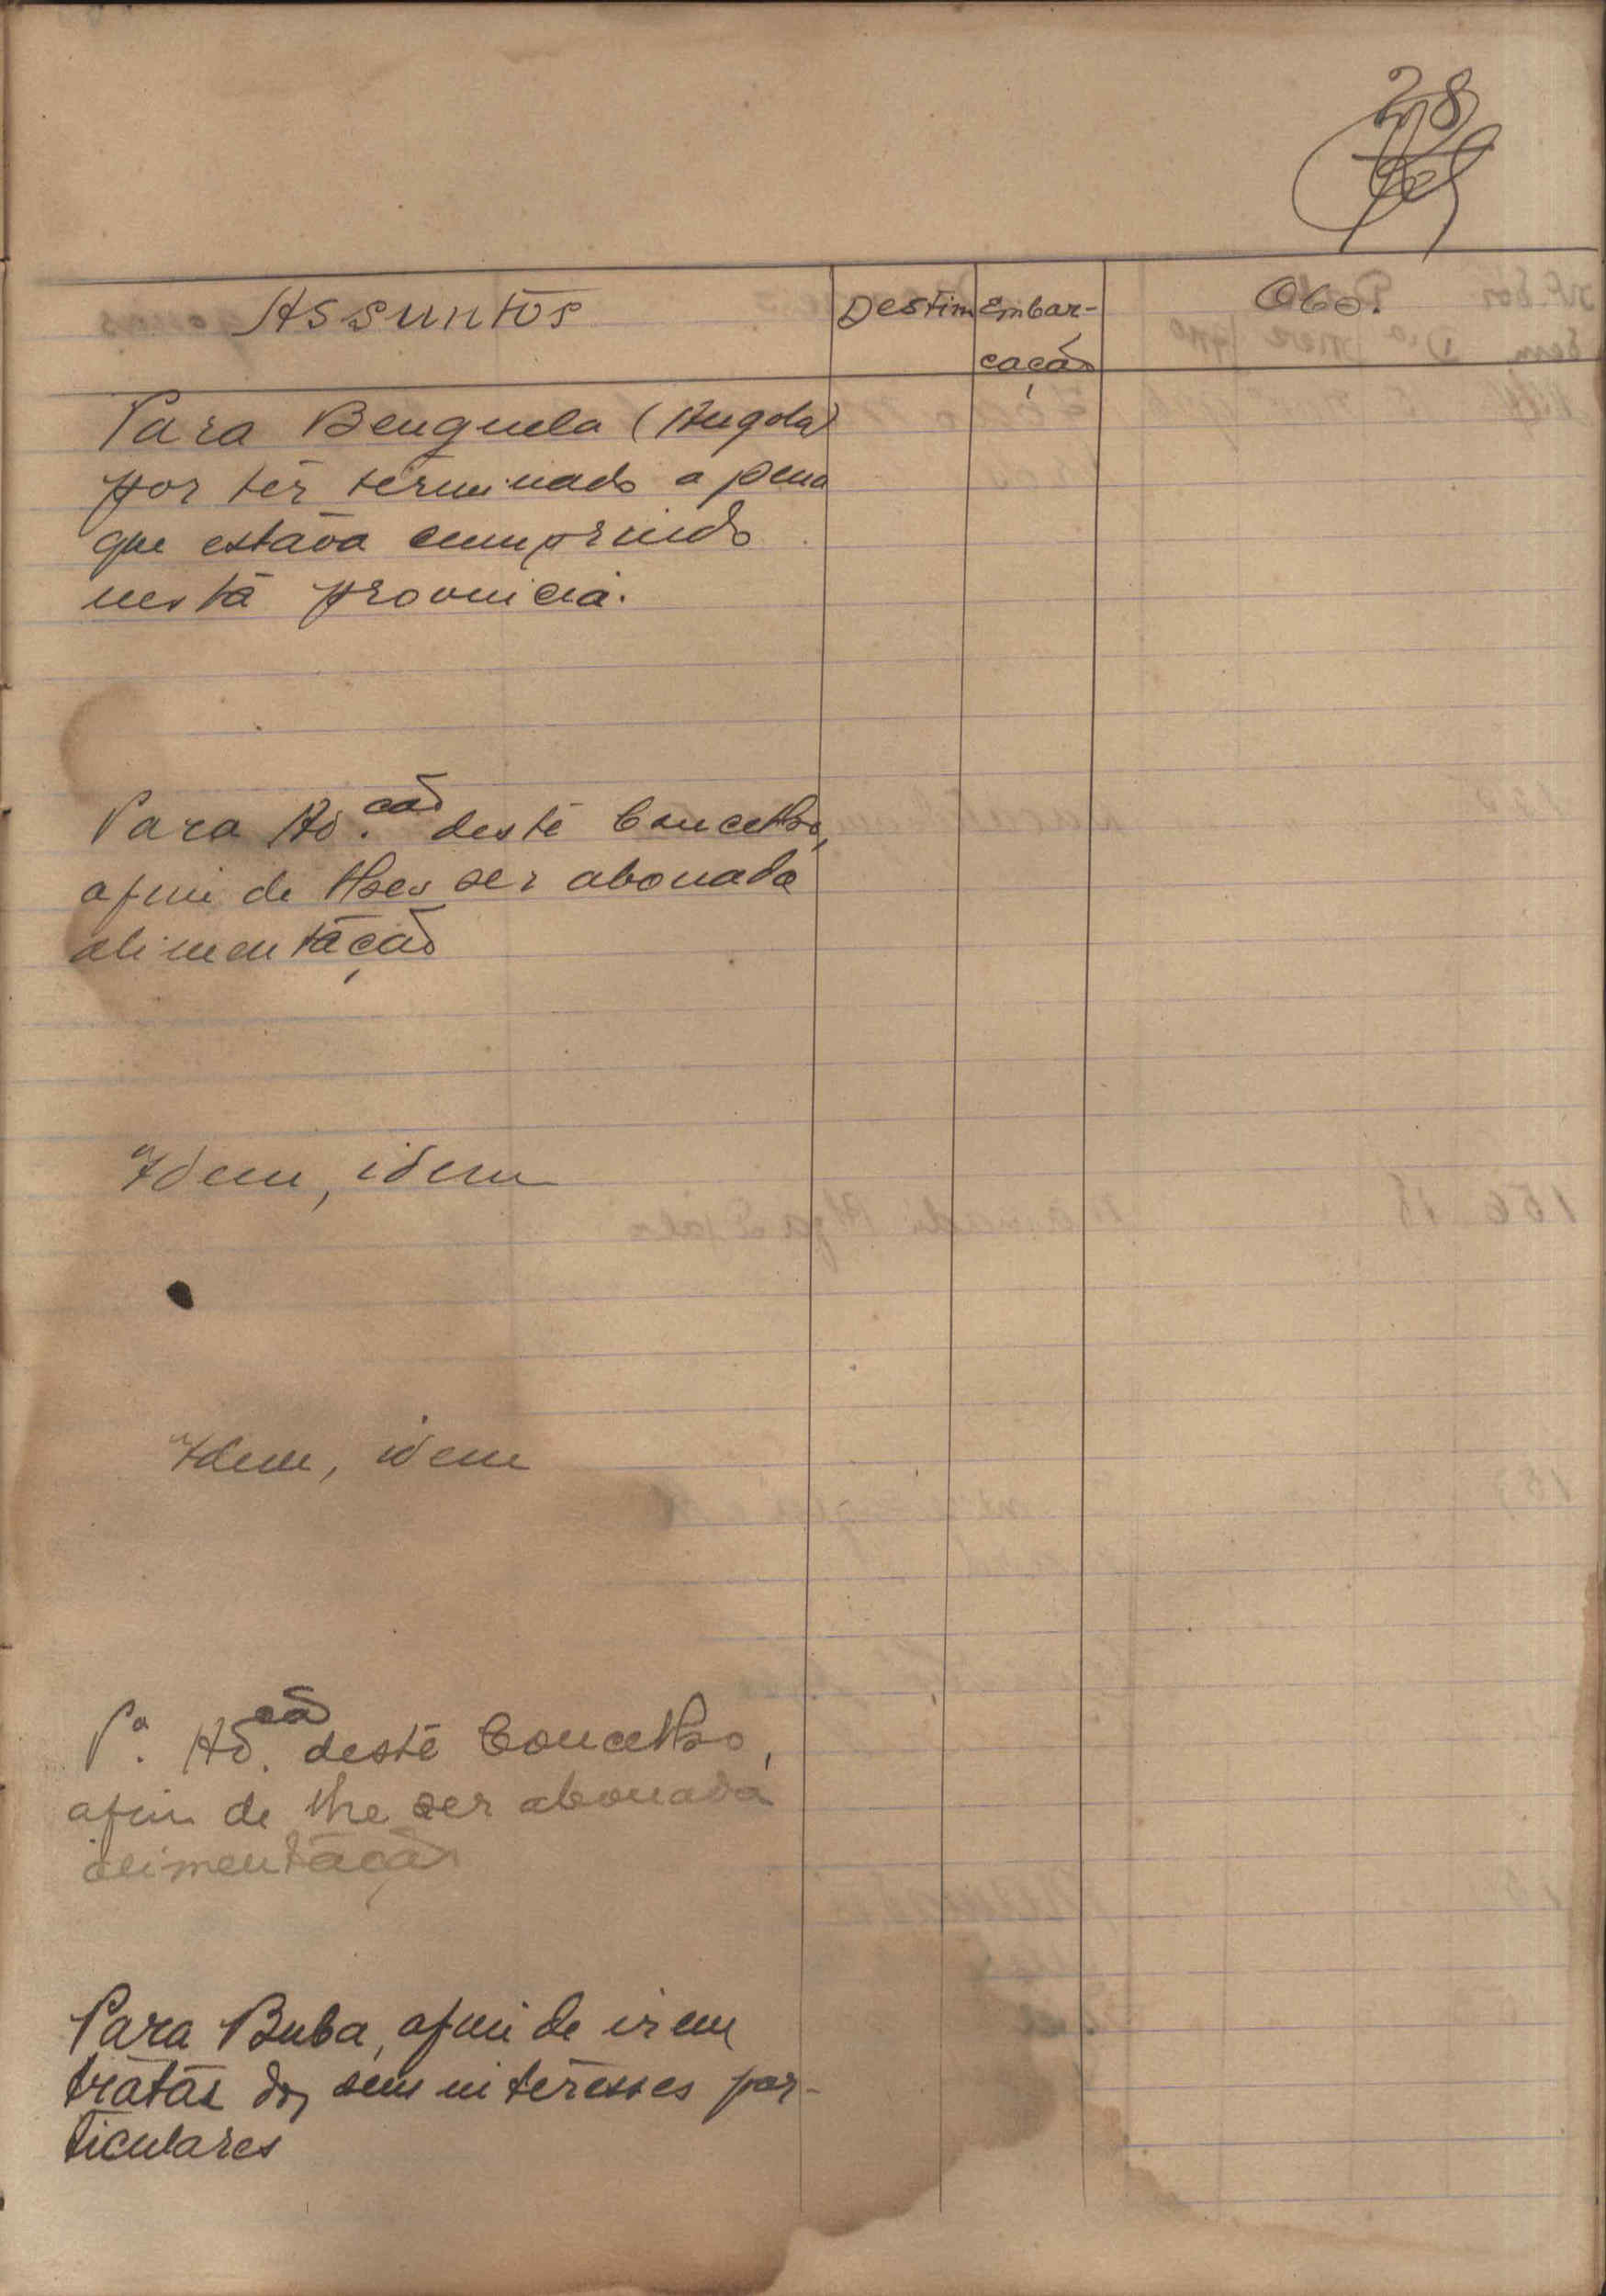 28
Assuntos
Destin
Embar-
cação
Obs.
Para Benguela (Angola)
por ter terminado a pena
que estava cumprindo
nesta provincia.
Para Ad.cão deste Concelho,
afim de lhes ser abonada
alimentação
Idem, idem
Idem, idem
Pª. Ad.cão deste Concelho,
afim de lhe ser abonada
alimentação
Para Buba, afim de irem
tratar dos seus interesses par-
ticulares